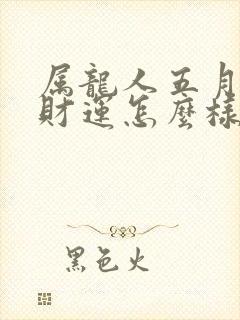 属龍人五月
財運怎麼樣
黑色火